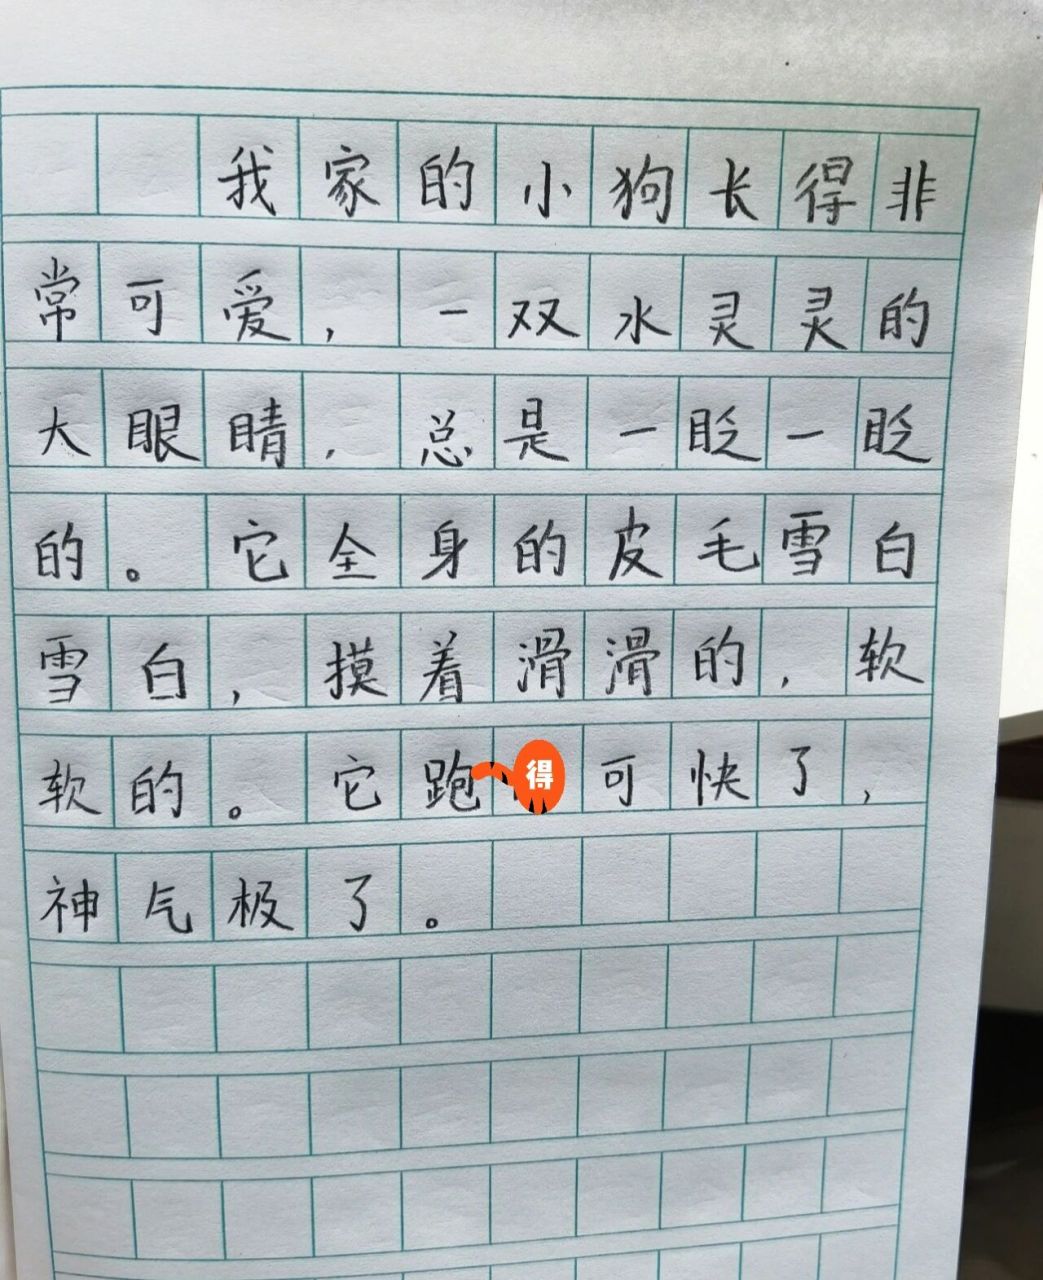 我家的小狗长得非
常可爱，一双水灵灵的
大眼睛，总是一眨一眨
的。它全身的皮毛雪白
雪白，摸着滑滑的，软
软的。它跑得可快了，
神气极了。